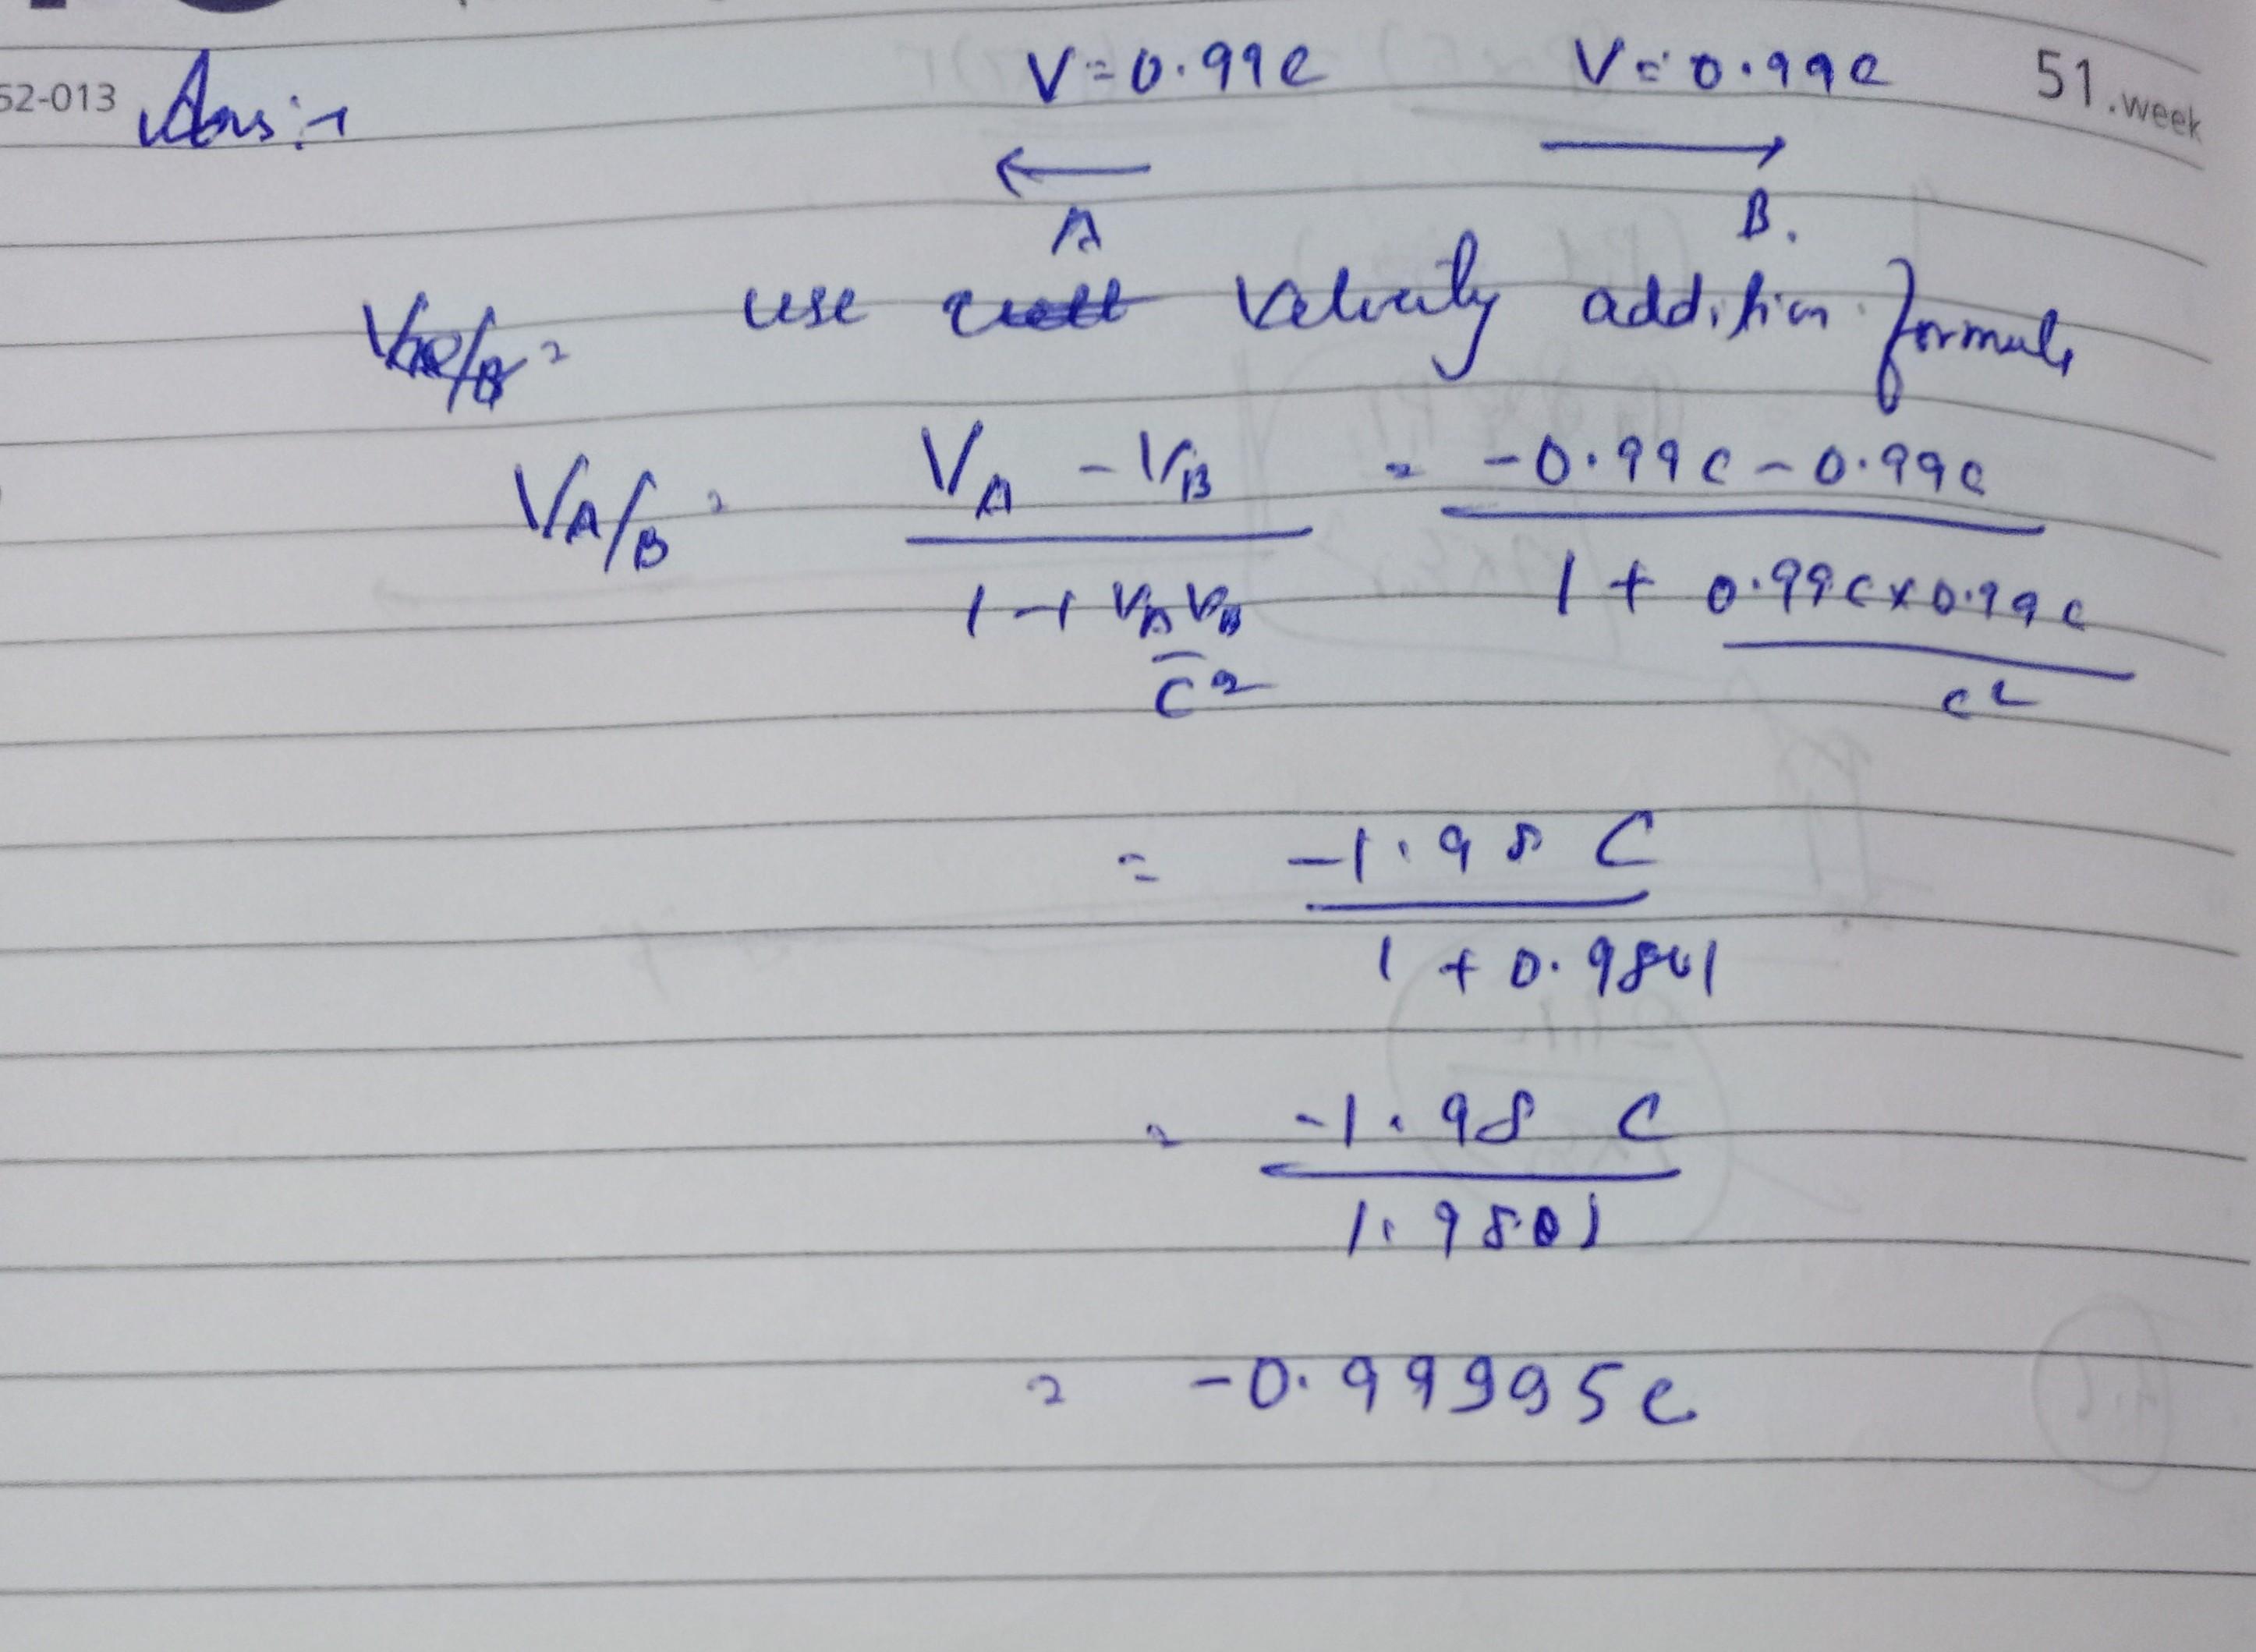 V=0.99c V=0.99c 51.week
52-013 Ans:-
A B.
use velocity addition formula
V_A/B = V_A - V_B / 1 - V_A V_B / c² = -0.99c - 0.99c / 1 + 0.99c x 0.99c / c²
= -1.98 C / 1 + 0.9801
= -1.98 C / 1.9801
= -0.99995c